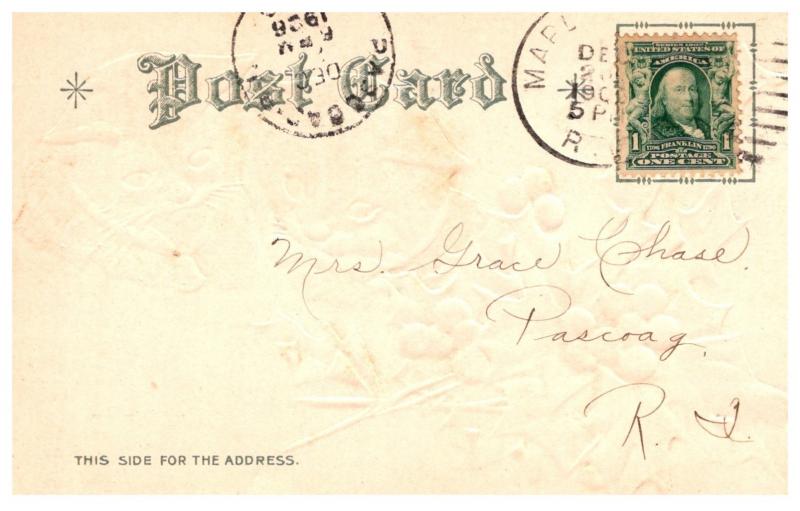 Post Card
1906
DEC
PASCOAG
MAPL
DE
190
5 P
R.
SERIES 1902
UNITED STATES OF
AMERICA
1706 FRANKLIN 1790
1 1
POSTAGE
ONE CENT
Mrs. Grace Chase.
Pascoag,
R. I.
THIS SIDE FOR THE ADDRESS.